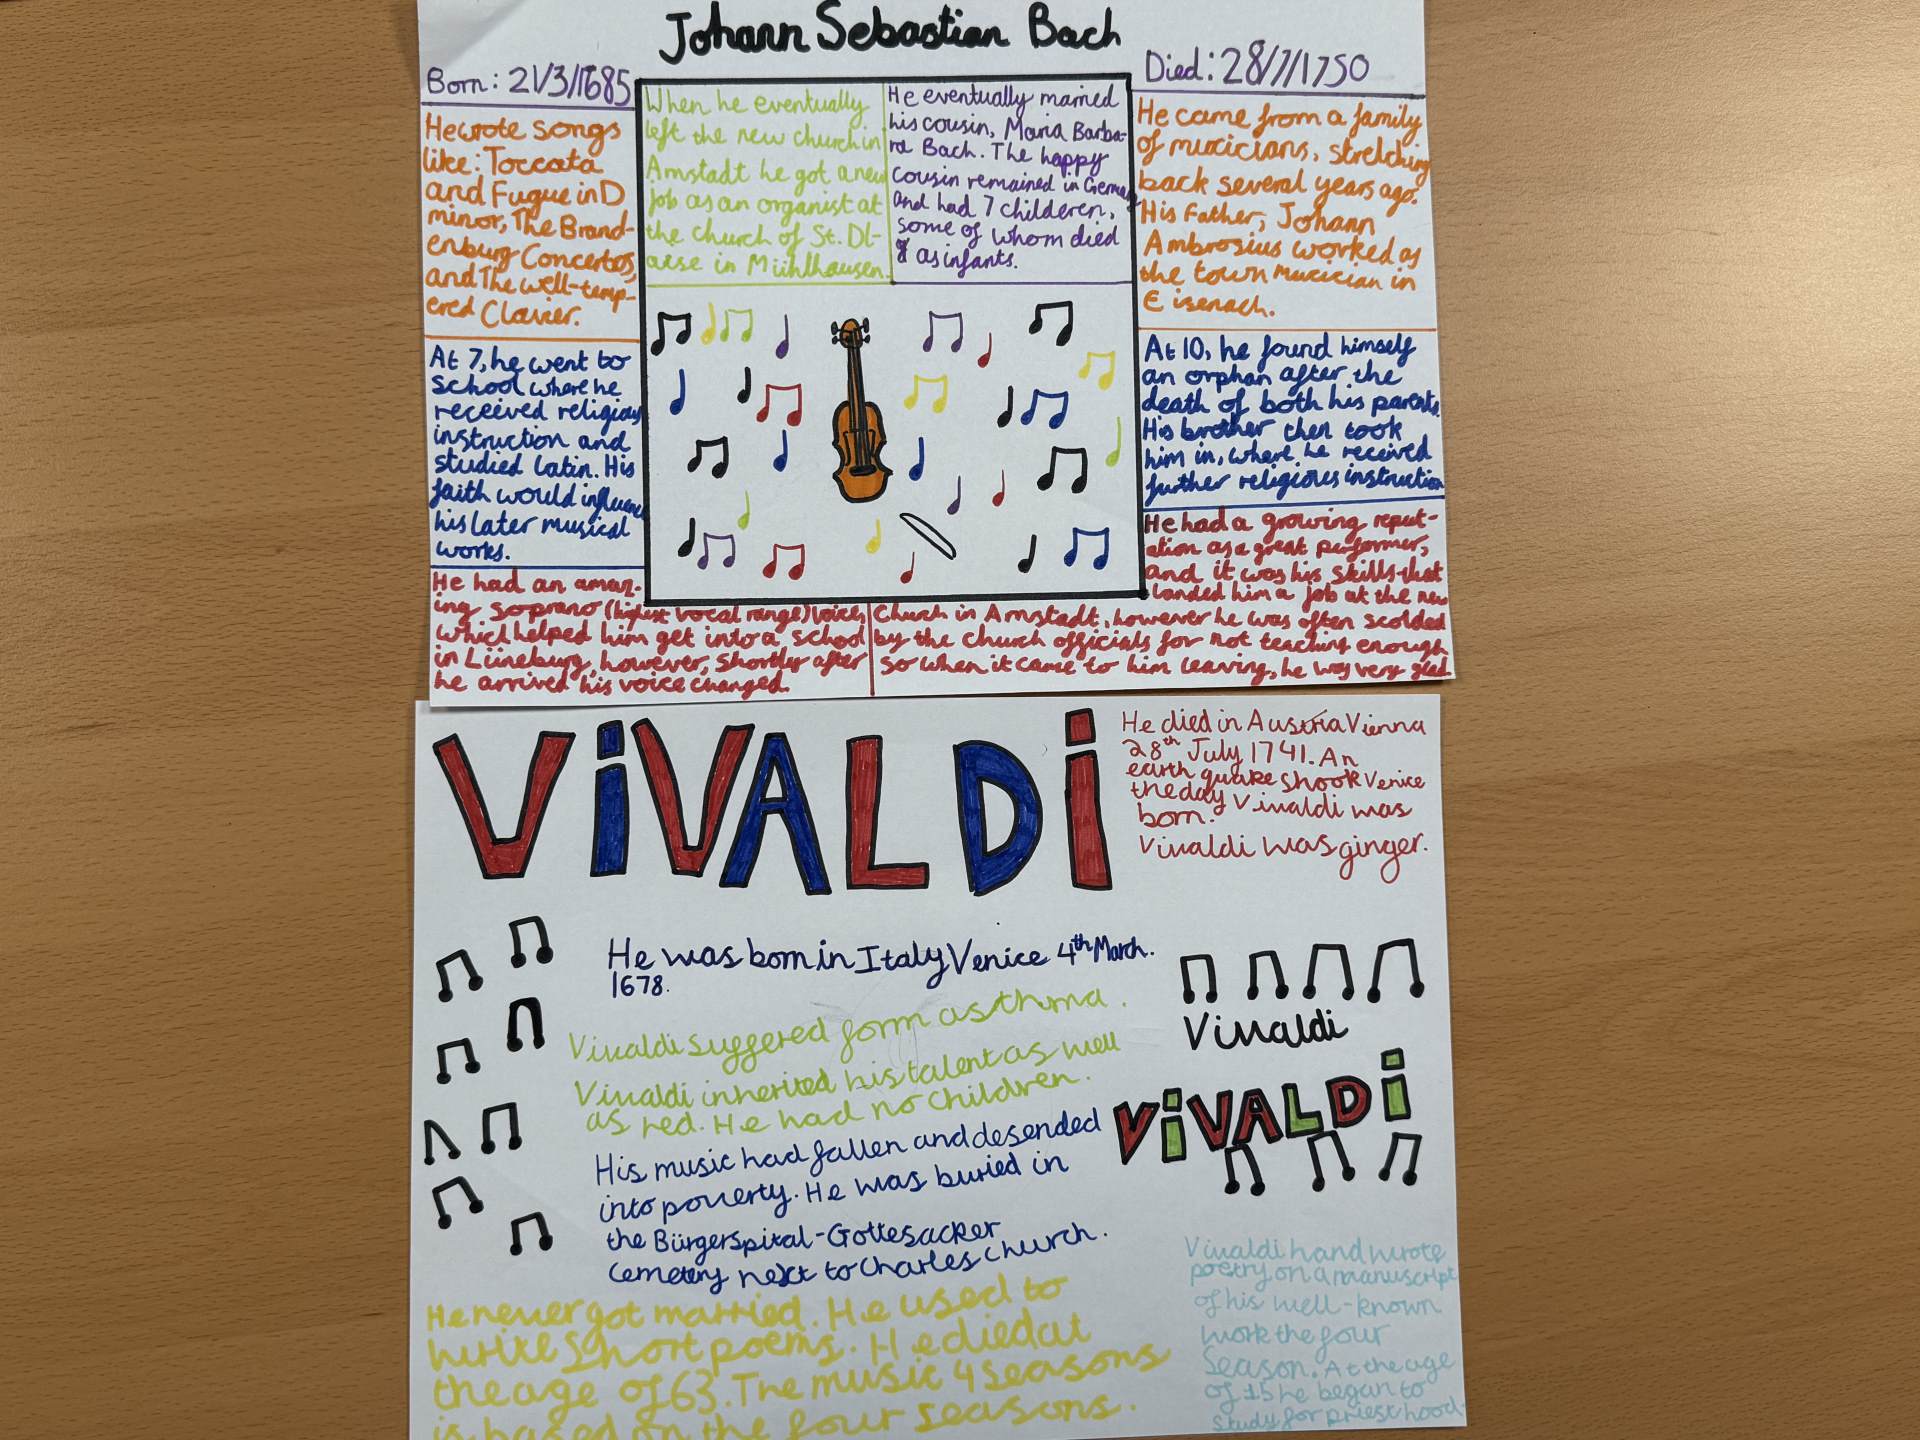 Johann Sebastian Bach
Born: 21/3/1685
Died: 28/7/1750
He wrote songs
like: Toccata
and Fugue in D
minor, The Brand-
enburg Concertos,
and The well-temp-
ered Clavier.
When he eventually
left the new church in
Arnstadt he got a new
job as an organist at
the church of St. Bl-
aise in Mühlhausen.
He eventually married
his cousin, Maria Barba-
ra Bach. The happy
cousin remained in Germany
and had 7 childeren,
some of whom died
as infants.
He came from a family
of musicians, stretching
back several years ago.
His Father, Johann
Ambrosius worked as
the town musician in
Eisenach.
At 7, he went to
school where he
received religious
instruction and
studied latin. His
faith would influence
his later musical
works.
At 10, he found himself
an orphan after the
death of both his parents.
His brother then took
him in, where he received
further religious instruction
He had an amaz-
ing soprano (highest vocal range) voice,
which helped him get into a school
in Lüneburg, however, shortly after
he arrived his voice changed.
He had a growing reput-
ation as a great performer,
and it was his skills that
landed him a job at the new
church in Arnstadt, however he was often scolded
by the church officials for not teaching enough
so when it came to him leaving, he was very glad.
ViVALDi
He died in Austria Vienna
28th July 1741. An
earth quake shook Venice
the day Vivaldi was
born.
Vivaldi was ginger.
He was born in Italy Venice 4th March.
1678.
Vivaldi suggered form asthma.
Vivaldi inherited his talent as well
as red. He had no children.
His music had fallen and desended
into poverty. He was buried in
the Bürgerspital-Gottesacker
cemetery next to Charles church.
He never got married. He used to
write short poems. He died at
the age of 63. The music 4 seasons
is based on the four seasons.
Vivaldi
ViVALDi
Vivaldi hand wrote
poetry on a manuscript
of his well-known
work the four
Season. At the age
of 15 he began to
study for priesthood.